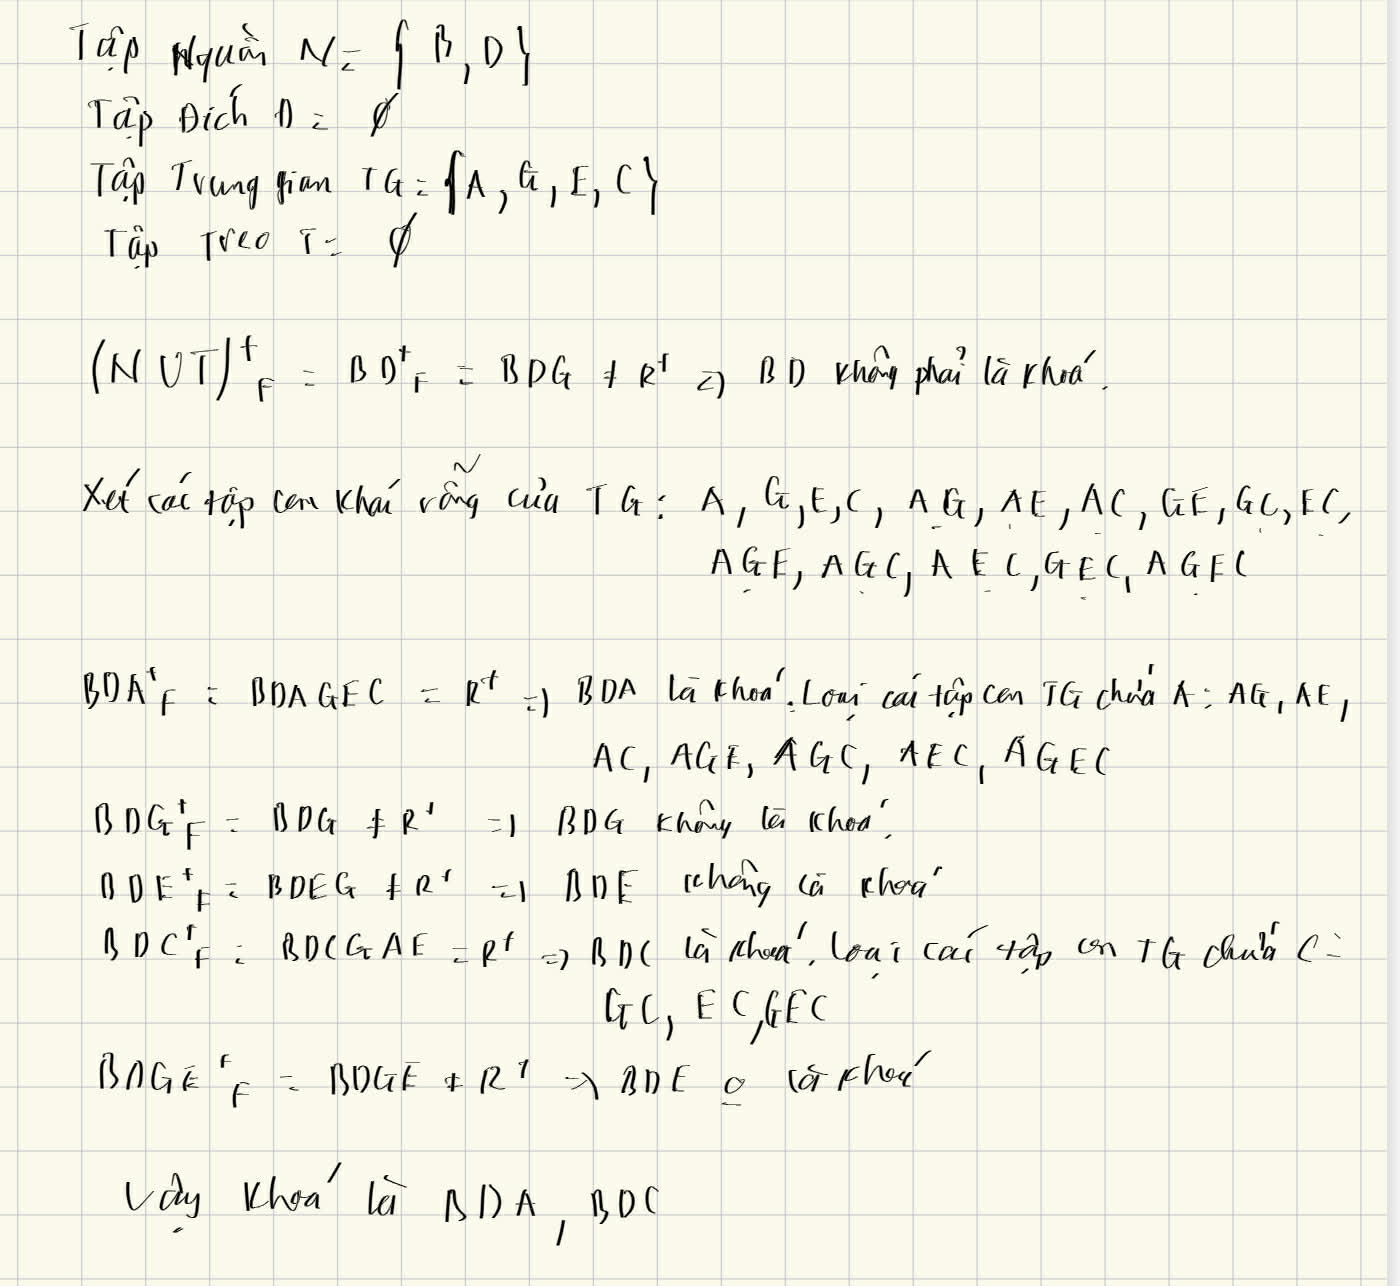 Tập Nguồn N = { B, D }
Tập Đích D = ∅
Tập Trung gian TG = { A, G, E, C }
Tập Treo T = ∅
(N U T)⁺F = BD⁺F = BDG ≠ R⁺ => BD không phải là khoá.
Xét các tập con khác rỗng của TG: A, G, E, C, AG, AE, AC, GE, GC, EC,
AGE, AGC, AEC, GEC, AGEC
BDA⁺F = BDAGEC = R⁺ => BDA là khoá. Loại các tập con TG chứa A: AG, AE,
AC, AGE, AGC, AEC, AGEC
BDG⁺F = BDG ≠ R⁺ => BDG không là khoá.
BDE⁺F = BDEG ≠ R⁺ => BDE không là khoá
BDC⁺F = BDCGAE = R⁺ => BDC là khoá. Loại các tập con TG chứa C:
GC, EC, GEC
BDGE⁺F = BDGE ≠ R⁺ => BDE o là khoá
Vậy khoá là BDA, BDC